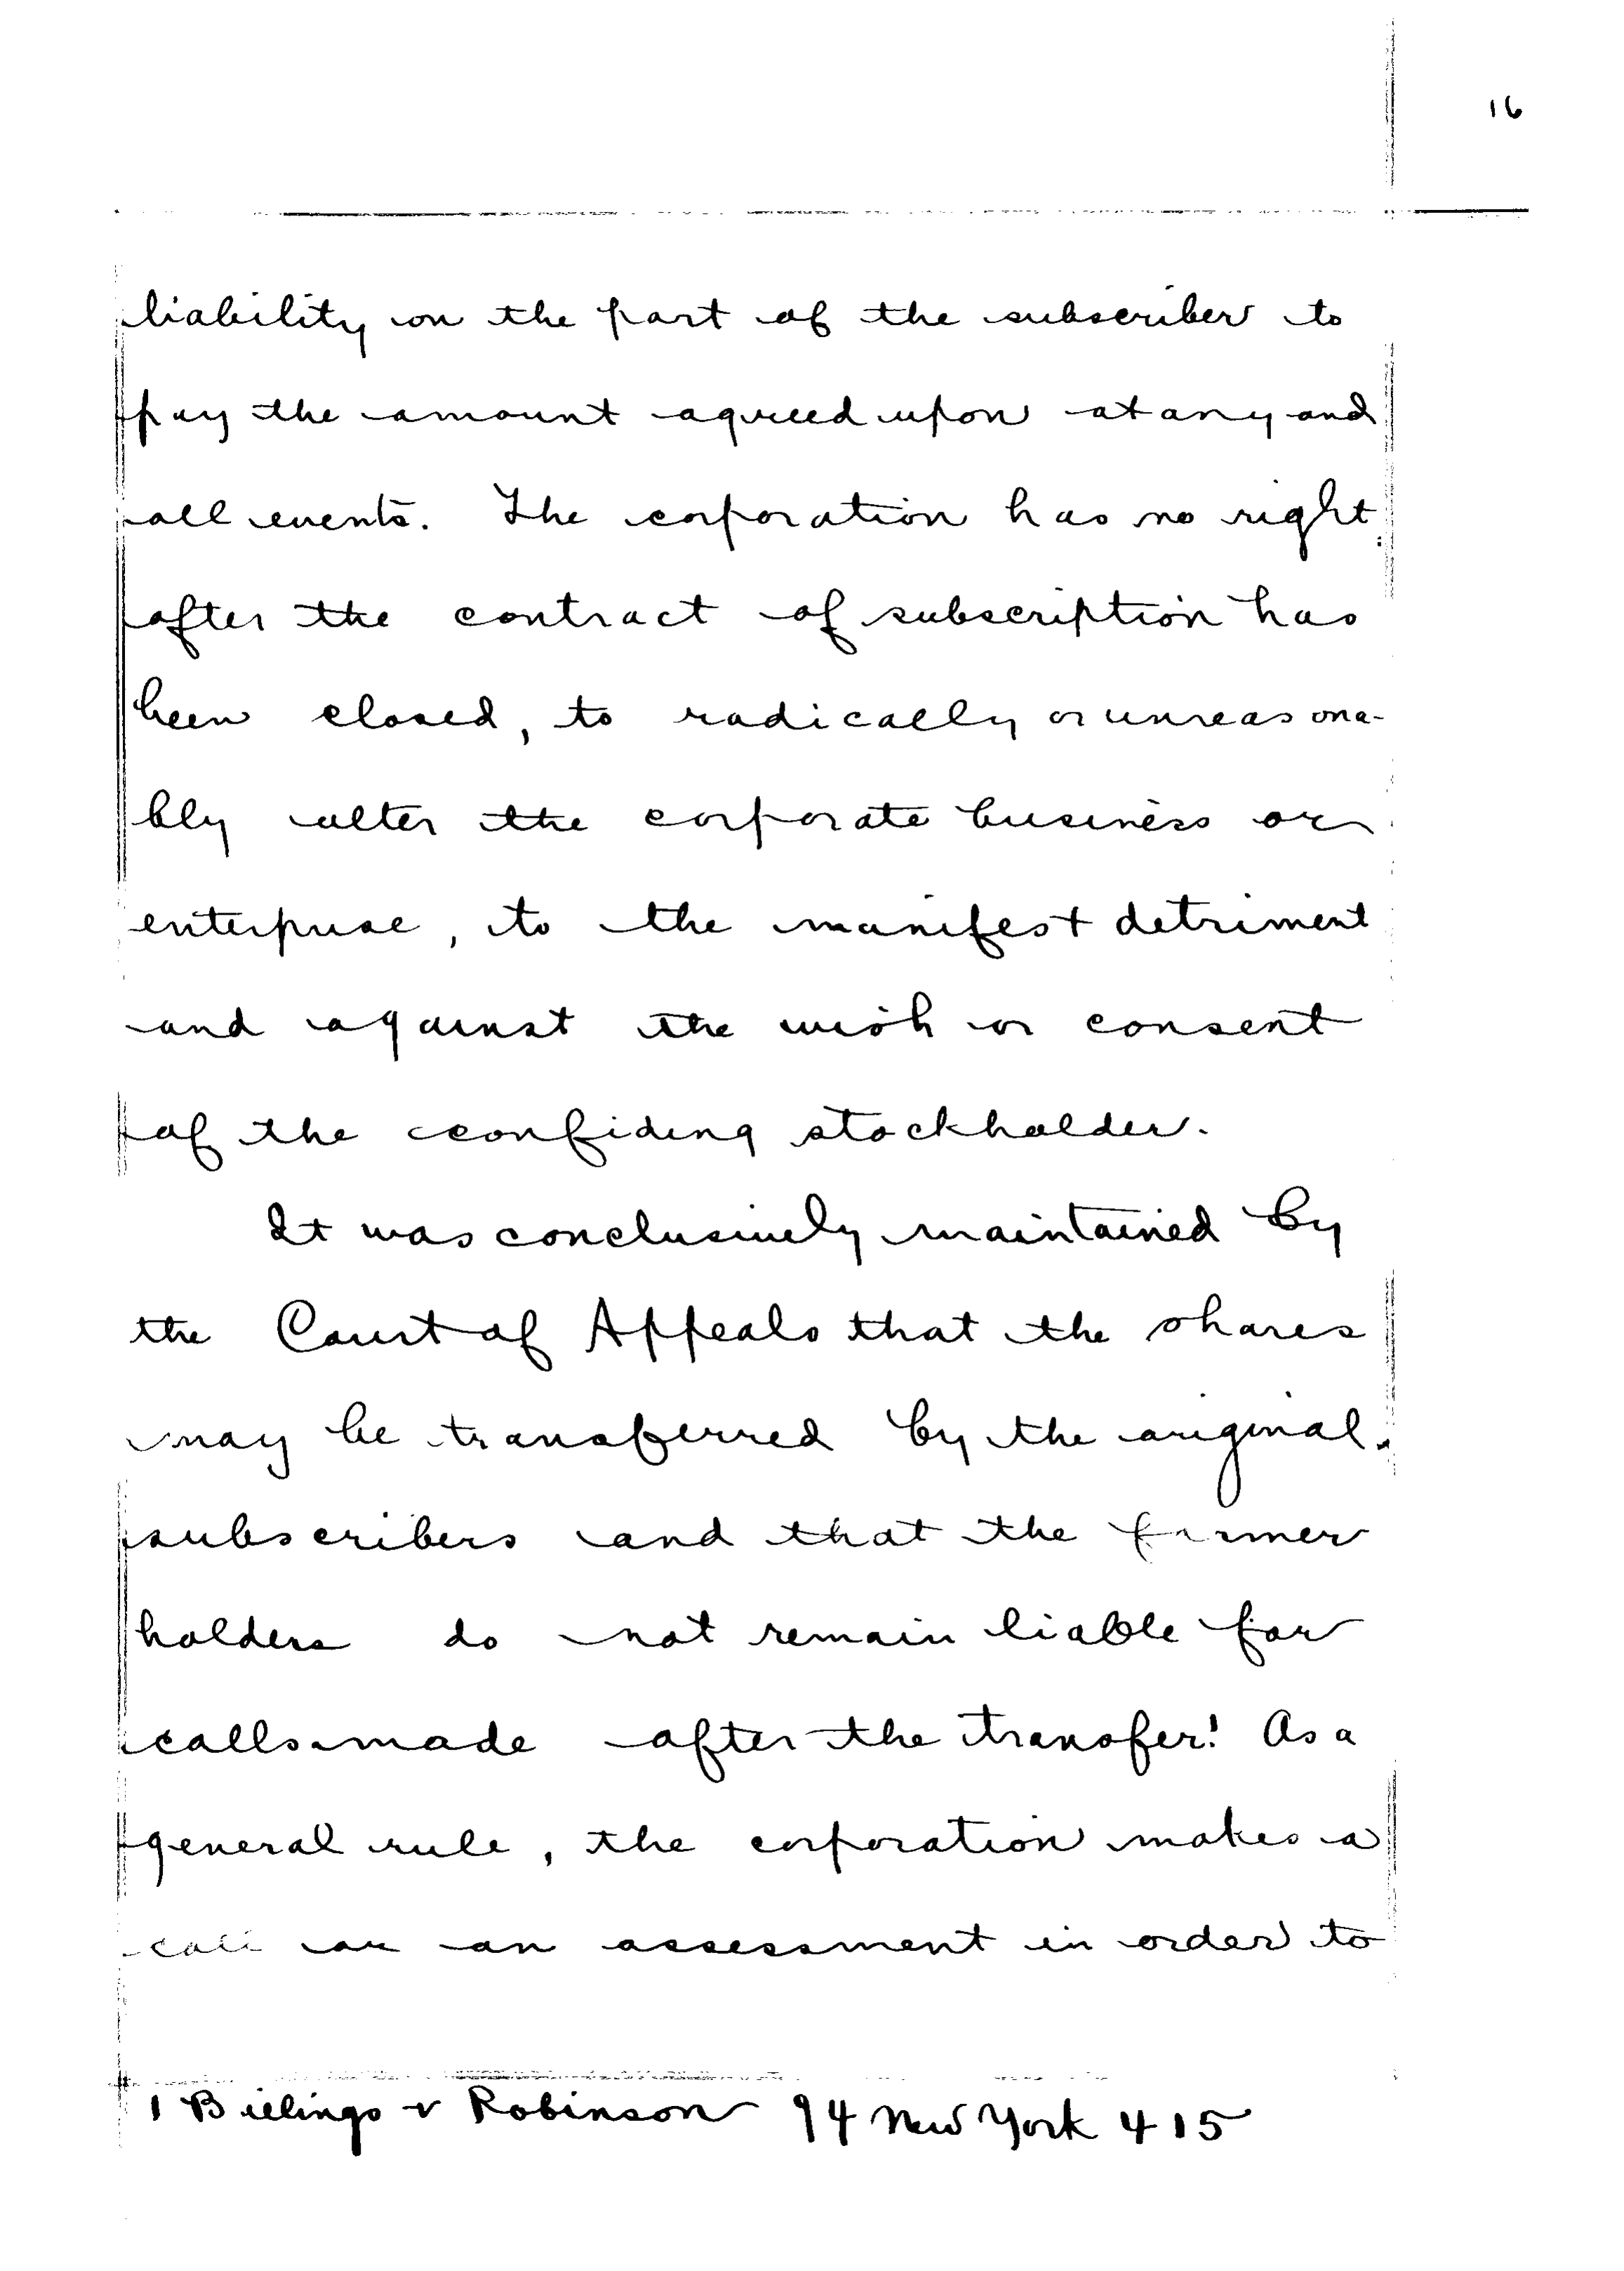 16
liability on the part of the subscriber to
pay the amount agreed upon at any and
all events. The corporation has no right
after the contract of subscription has
been closed, to radically or unreasona-
bly alter the corporate business or
enterprise, to the manifest detriment
and against the wish or consent
of the confiding stockholder.
It was conclusively maintained by
the Court of Appeals that the shares
may be transferred by the original
subscribers and that the former
holders do not remain liable for
calls made after the transfer.¹ As a
general rule, the corporation makes a
call or an assessment in order to
1 Billings v Robinson 94 New York 415